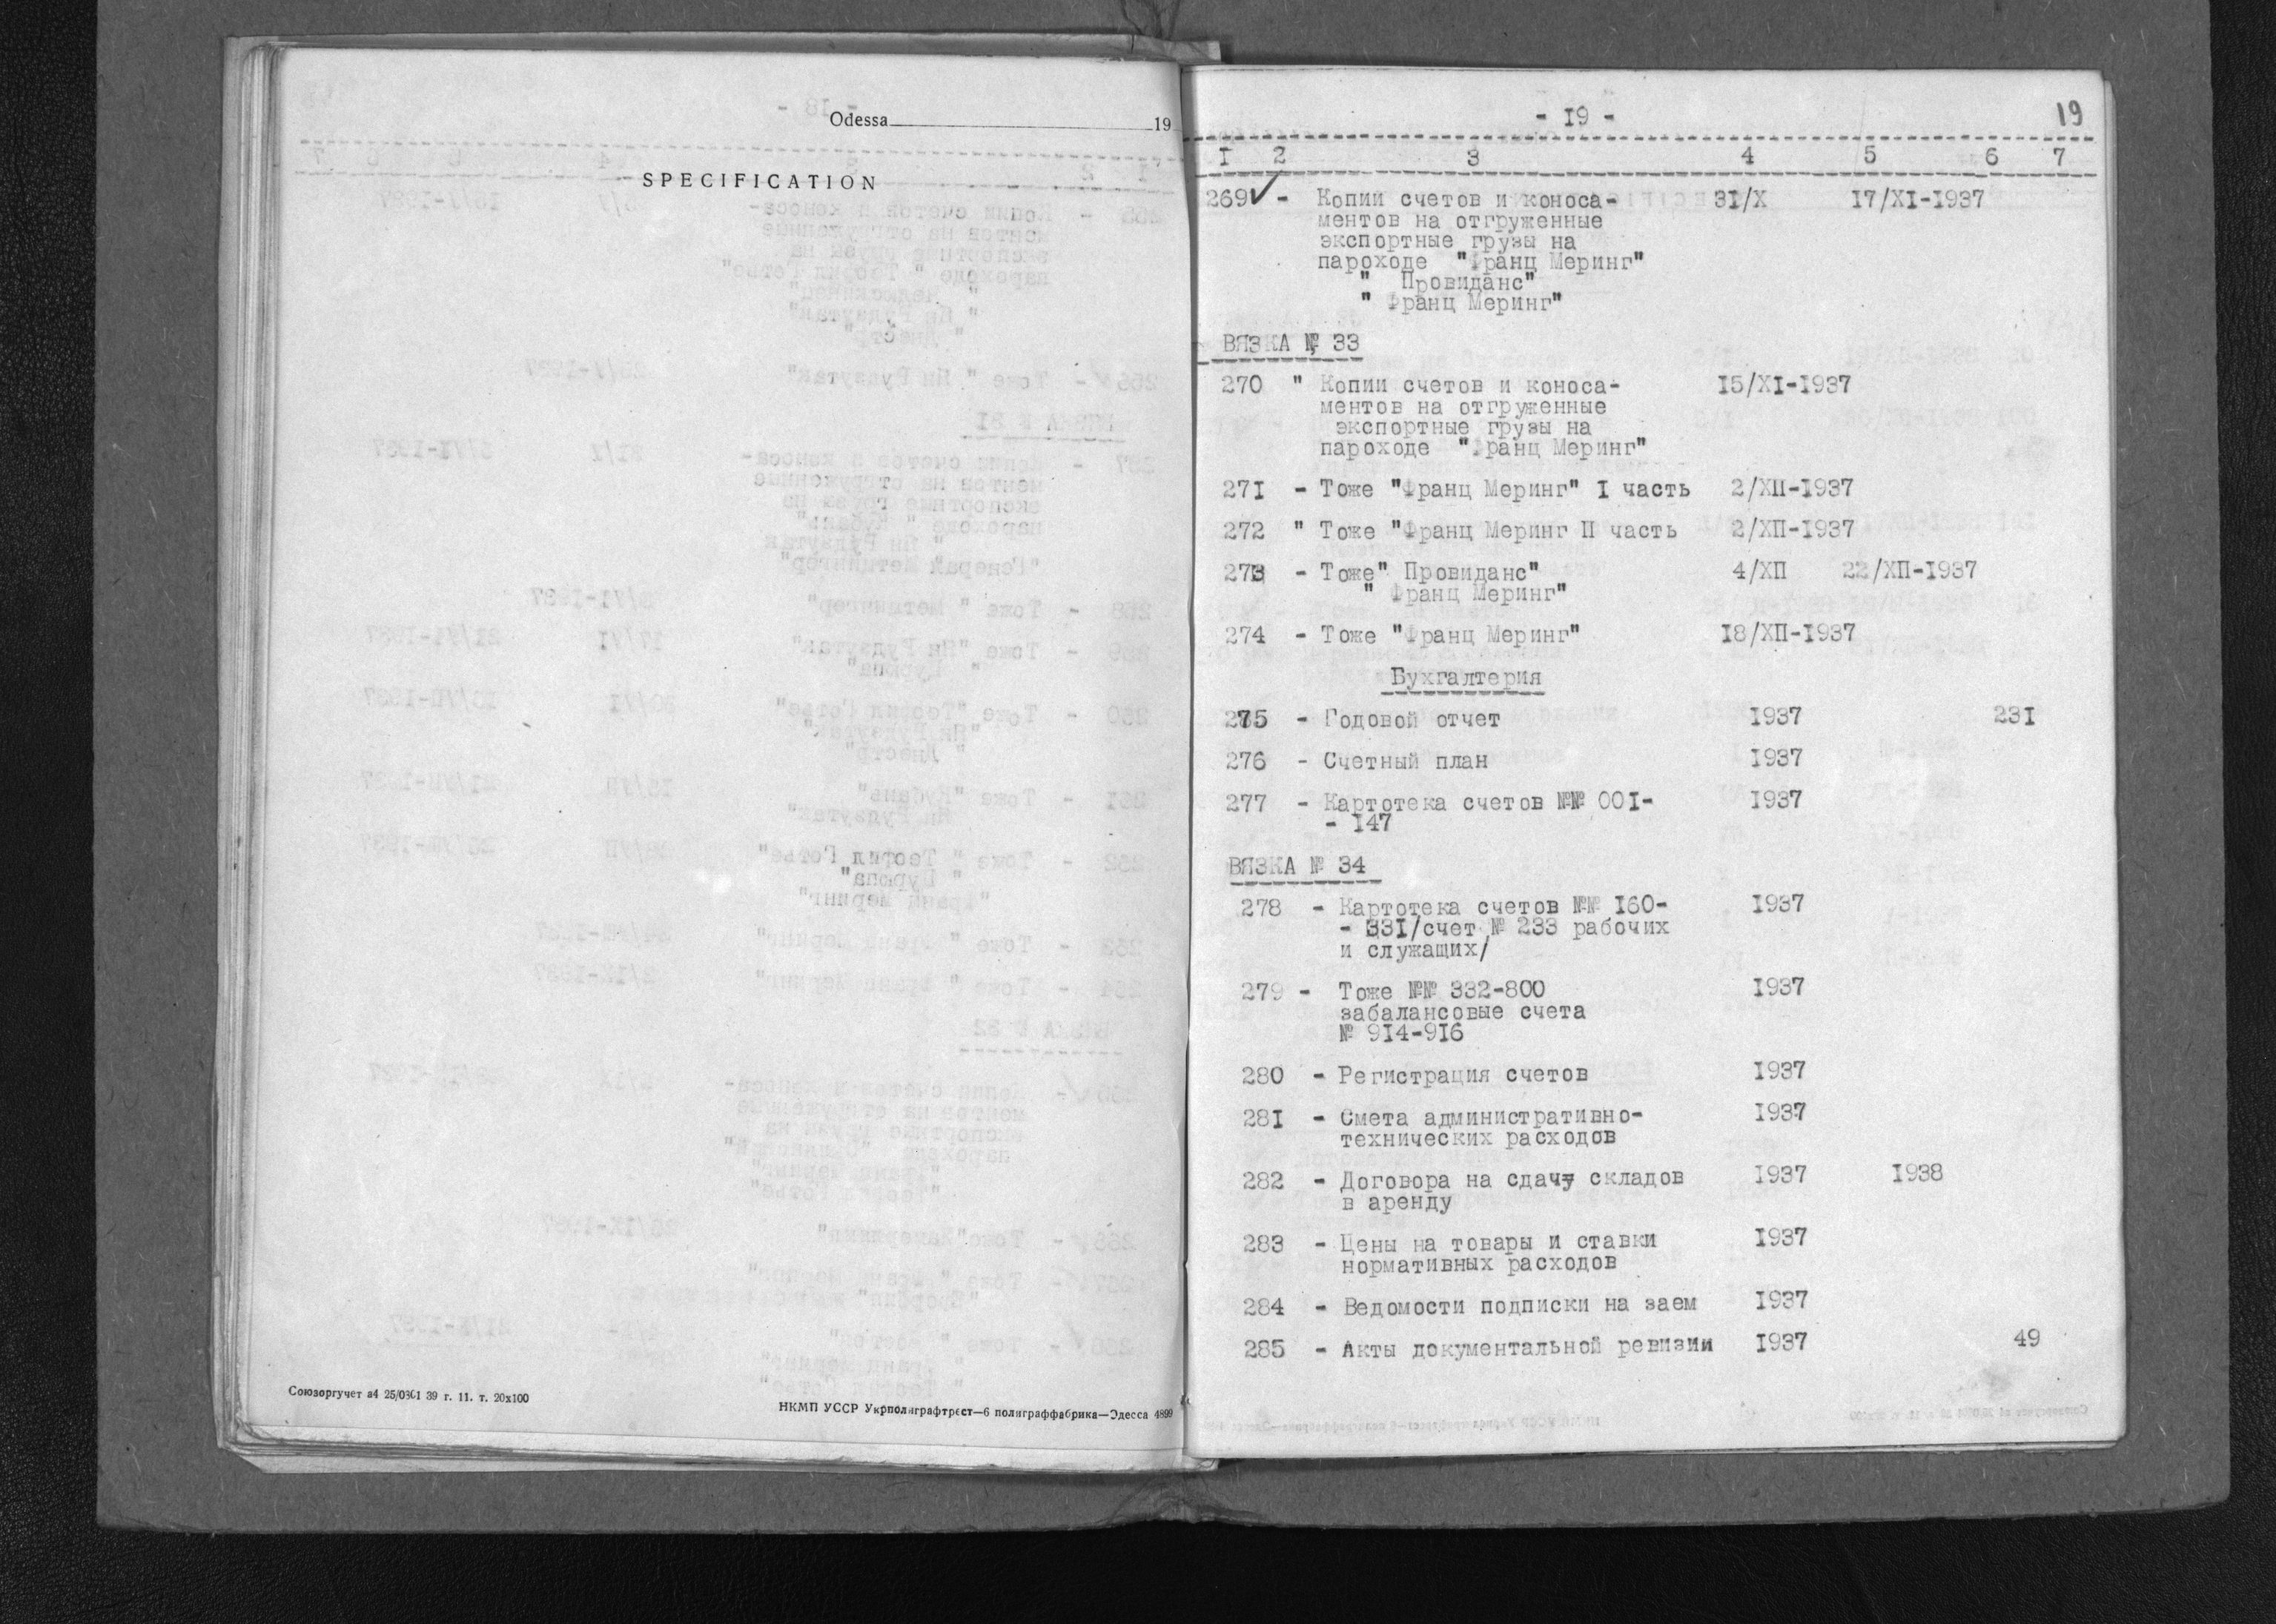 Odessa 19
SPECIFICATION
Союзоргучет а4 25/0301 39 г. 11. т. 20х100
НКМП УССР Укрполиграфтрест—6 полиграффабрика—Одесса 4899
- 19 - 19
1 2 3 4 5 6 7
269 ✓ - Копии счетов и коноса- 31/X 17/XI-1937
ментов на отгруженные
экспортные грузы на
пароходе "Франц Меринг"
" Провиданс"
" Франц Меринг"
ВЯЗКА № 33
270 " Копии счетов и коноса- 15/XI-1937
ментов на отгруженные
экспортные грузы на
пароходе "Франц Меринг"
271 - Тоже "Франц Меринг" I часть 2/XII-1937
272 " Тоже "Франц Меринг II часть 2/XII-1937
273 - Тоже" Провиданс" 4/XII 22/XII-1937
" Франц Меринг"
274 - Тоже "Франц Меринг" 18/XII-1937
Бухгалтерия
275 - Годовой отчет 1937 231
276 - Счетный план 1937
277 - Картотека счетов №№ 001- 1937
- 147
ВЯЗКА № 34
278 - Картотека счетов №№ 160- 1937
- 331/счет № 233 рабочих
и служащих/
279 - Тоже №№ 332-800 1937
забалансовые счета
№ 914-916
280 - Регистрация счетов 1937
281 - Смета административно- 1937
технических расходов
282 - Договора на сдачу складов 1937 1938
в аренду
283 - Цены на товары и ставки 1937
нормативных расходов
284 - Ведомости подписки на заем 1937
285 - Акты документальной ревизии 1937 49